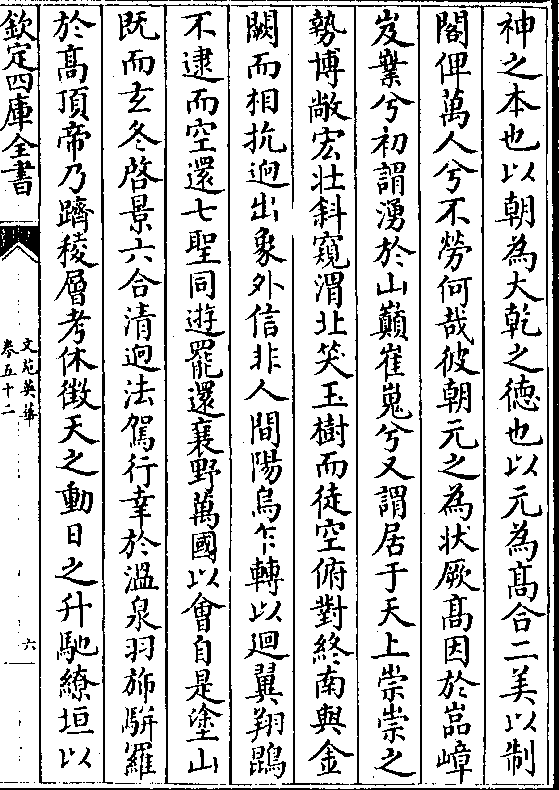 神之本也以朝為大乾之德也以元為髙合二美以制
閣俾萬人兮不勞何哉彼朝元之為狀厥髙因於嵓嶂
岌嶪兮初謂湧於山巔崔嵬兮又謂居于天上崇崇之
勢博敞宏壯斜窺渭北笑玉樹而徒空俯對終南與金
闕而相抗逈出象外信非人間陽烏乍轉以迴翼翔鵾
不逮而空還七聖同遊罷還襄野萬國以會自是塗山
既而玄冬啓景六合清逈法駕行幸於溫泉羽斾駢羅
於髙頂帝乃躋稜層考休徵天之動日之升馳繚垣以
欽定四庫全書
文苑英華
卷五十二
六